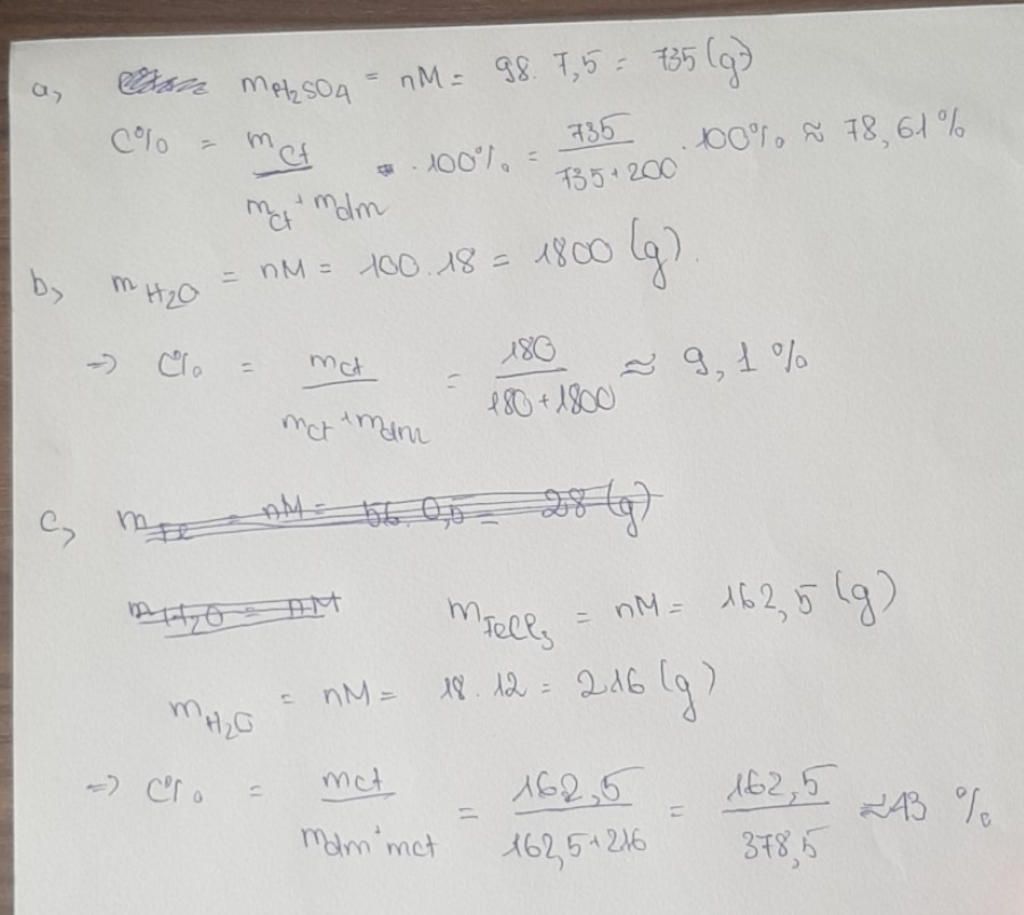 a, m_H2SO4 = nM = 98. 7,5 = 735 (g)
C% = m_ct / (m_ct + m_dm) . 100% = 735 / (735 + 200) . 100% ≈ 78,61%
b, m_H2O = nM = 100.18 = 1800 (g).
=> C% = mct / (mct + mdm) = 180 / (180 + 1800) ≈ 9,1 %
c, m_Fe = nM = 56. 0,5 = 28 (g)
m_H2O = nM m_FeCl3 = nM = 162,5 (g)
m_H2O = nM = 18.12 = 216 (g)
=> C% = mct / (mdm + mct) = 162,5 / (162,5 + 216) = 162,5 / 378,5 ≈ 43 %